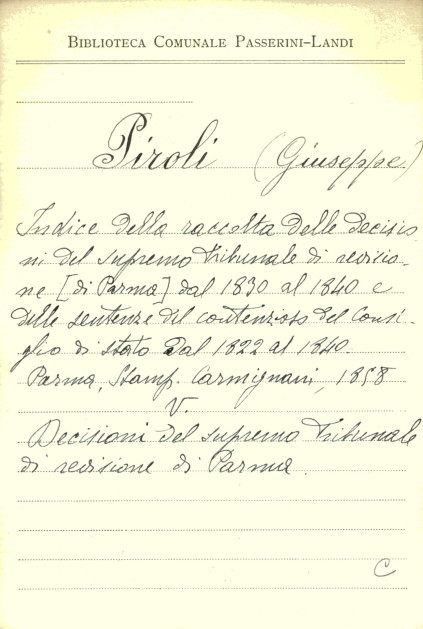 BIBLIOTECA COMUNALE PASSERINI-LANDI
Piroli (Giuseppe)
Indice della raccolta delle decisio
ni del supremo tribunale di revisio-
ne [di Parma] dal 1830 al 1840 e
delle sentenze del contenzioso del Consi-
glio di stato dal 1822 al 1840.
Parma, Stamp. Carmignani, 1858
V.
Decisioni del supremo tribunale
di revisione di Parma.
C